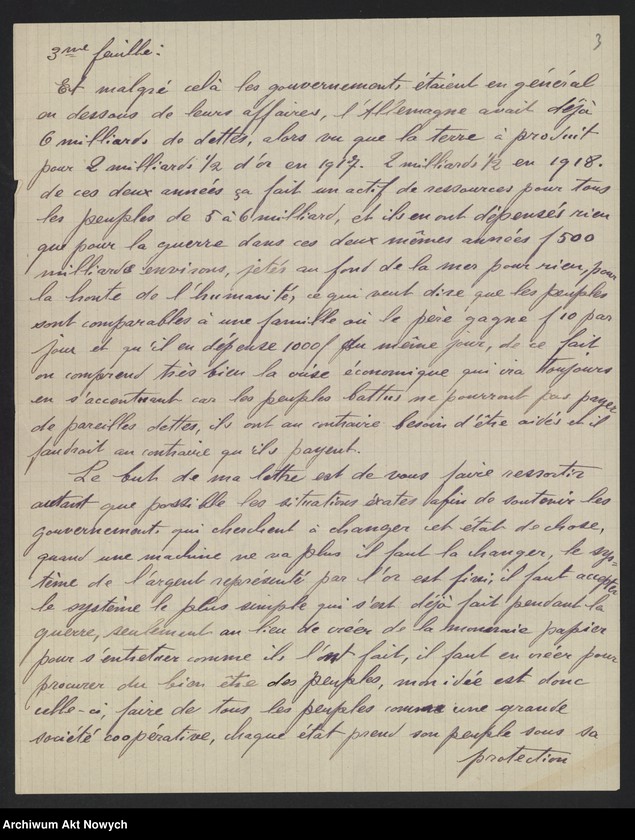 3
3me feuille:
Et malgré celà les gouvernements étaient en général
au dessous de leurs affaires, l'Allemagne avait déjà
6 milliards de dettes, alors vu que la terre à produit
pour 2 milliards 1/2 d'or en 1917. 2 milliards 1/2 en 1918.
de ces deux années ça fait un actif de ressources pour tous
les peuples de 5 à 6 milliard, et ils en ont dépensés rien
que pour la guerre dans ces deux mêmes années f 500
milliards environs, jetés au fond de la mer pour rien, pour
la honte de l'humanité, ce qui veut dire que les peuples
sont comparables à une famille où le père gagne f 10 par
jour et qu'il en dépense 1000f du même jour, de ce fait
on comprend très bien la crise économique qui ira toujours
en s'accentuant car les peuples battus ne pourront pas payer
de pareilles dettes, ils ont au contraire besoin d'être aidés et il
faudrait au contraire qu'ils payent.
Le but de ma lettre est de vous faire ressortir
autant que possible les situations éxates afin de soutenir les
gouvernements qui cherchent à changer cet état de chose,
quand une machine ne va plus il faut la changer, le sys-
tème de l'argent représenté par l'or est fini, il faut accepter
le système le plus simple qui s'est déjà fait pendant la
guerre, seulement au lieu de créer de la monnaie papier
pour s'entretuer comme ils l'ont fait, il faut en créer pour
procurer du bien être des peuples, mon idée est donc
celle-ci, faire de tous les peuples comme une grande
société coopérative, chaque état prend son peuple sous sa
protection
Archiwum Akt Nowych